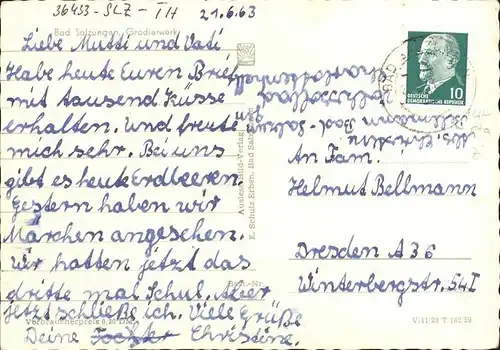 36433-SLZ-TH
21.6.63
Bad Salzungen, Gradierwerk
Liebe Mutti und Vati
Habe heute Euren Brief
mit tausend Küsse
erhalten. Und freute
mich sehr. Bei uns
gibt es heute Erdbeeren.
Gestern haben wir
Märchen angesehen.
Wir hatten jetzt das
dritte mal Schul. Aber
Jetzt schließe ich. Viele Grüße
Deine Tochter Christine.
Verbraucherpreis 0,20 DM
Auslese-Bild-Verlag
E. Schulz Erben, Bad Salzungen
Best.-Nr.
10
DEUTSCHE
DEMOKRATISCHE REPUBLIK
Abs. Christine
Bellmann Bad-Salzungen
An Fam.
Helmut Bellmann
Dresden A 36
Winterbergstr. 54 I
V/11/22 T 162/59